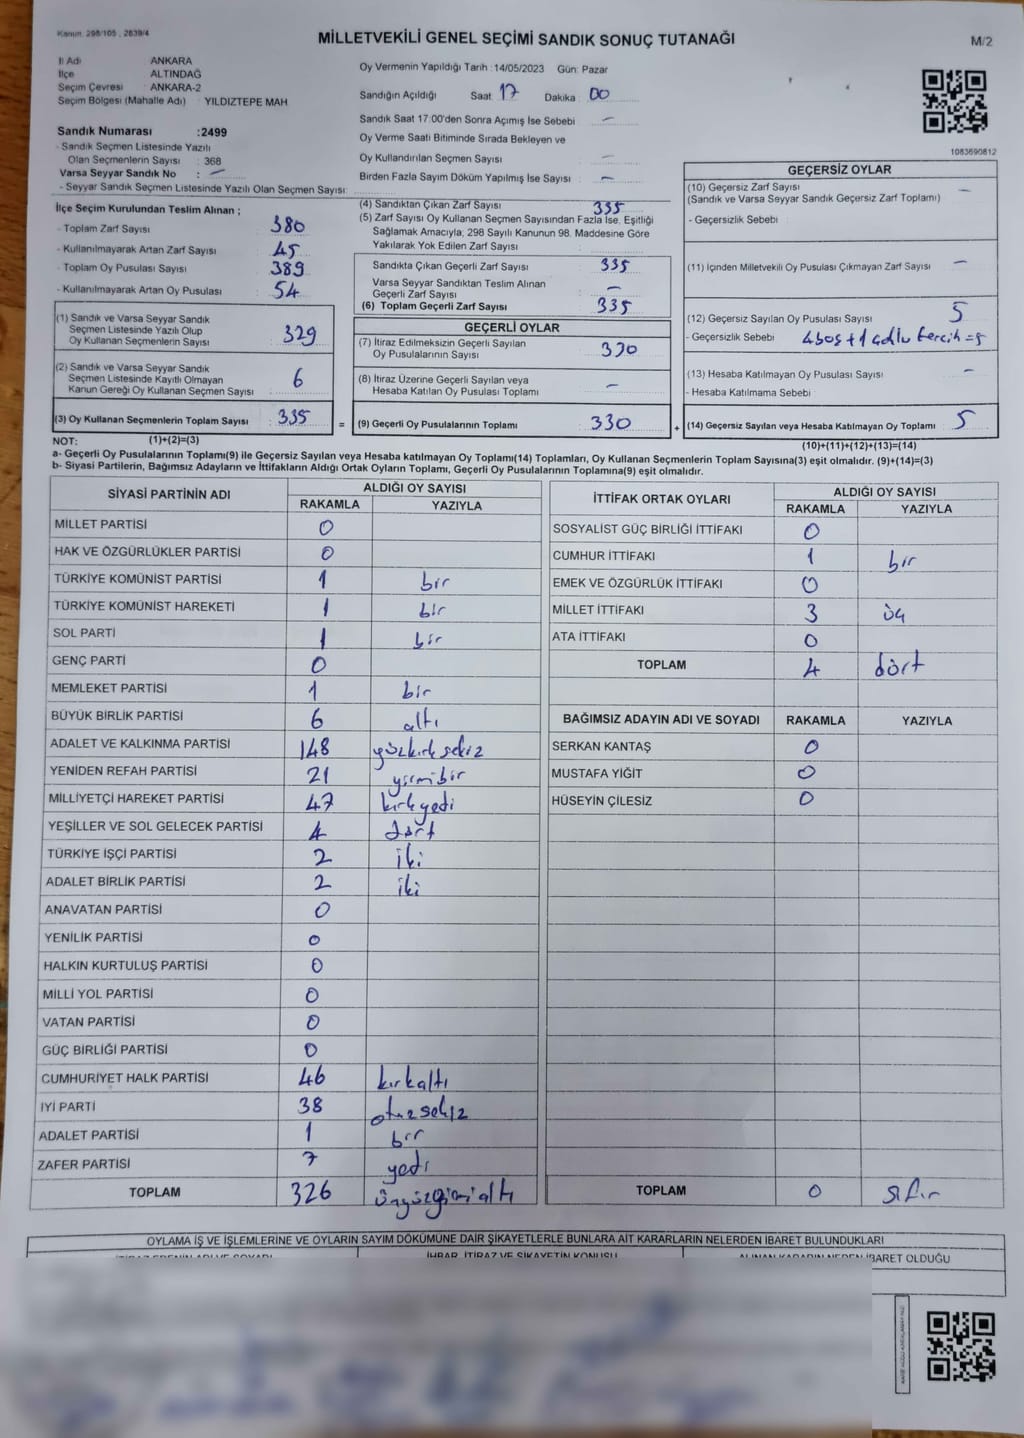 Kanun: 298/105 , 2839/4
MİLLETVEKİLİ GENEL SEÇİMİ SANDIK SONUÇ TUTANAĞI
M/2
İl Adı : ANKARA
İlçe : ALTINDAĞ
Seçim Çevresi : ANKARA-2
Seçim Bölgesi (Mahalle Adı) : YILDIZTEPE MAH
Oy Vermenin Yapıldığı Tarih :14/05/2023 Gün: Pazar
Sandığın Açıldığı Saat: 17 Dakika: 00
Sandık Saat 17:00'den Sonra Açımış İse Sebebi : —
Oy Verme Saati Bitiminde Sırada Bekleyen ve
Oy Kullandırılan Seçmen Sayısı : —
Birden Fazla Sayım Döküm Yapılmış İse Sayısı : —
Sandık Numarası :2499
- Sandık Seçmen Listesinde Yazılı
Olan Seçmenlerin Sayısı : 368
Varsa Seyyar Sandık No : —
- Seyyar Sandık Seçmen Listesinde Yazılı Olan Seçmen Sayısı:
1083690812
İlçe Seçim Kurulundan Teslim Alınan ;
- Toplam Zarf Sayısı : 380
- Kullanılmayarak Artan Zarf Sayısı : 45
- Toplam Oy Pusulası Sayısı : 389
- Kullanılmayarak Artan Oy Pusulası : 54
(1) Sandık ve Varsa Seyyar Sandık
Seçmen Listesinde Yazılı Olup
Oy Kullanan Seçmenlerin Sayısı : 329
(2) Sandık ve Varsa Seyyar Sandık
Seçmen Listesinde Kayıtlı Olmayan
Kanun Gereği Oy Kullanan Seçmen Sayısı : 6
(3) Oy Kullanan Seçmenlerin Toplam Sayısı : 335
(4) Sandıktan Çıkan Zarf Sayısı : 335
(5) Zarf Sayısı Oy Kullanan Seçmen Sayısından Fazla İse, Eşitliği
Sağlamak Amacıyla; 298 Sayılı Kanunun 98. Maddesine Göre
Yakılarak Yok Edilen Zarf Sayısı :
Sandıkta Çıkan Geçerli Zarf Sayısı : 335
Varsa Seyyar Sandıktan Teslim Alınan
Geçerli Zarf Sayısı : —
(6) Toplam Geçerli Zarf Sayısı : 335
GEÇERLİ OYLAR
(7) İtiraz Edilmeksizin Geçerli Sayılan
Oy Pusulalarının Sayısı : 330
(8) İtiraz Üzerine Geçerli Sayılan veya
Hesaba Katılan Oy Pusulası Toplamı : —
= (9) Geçerli Oy Pusulalarının Toplamı : 330
GEÇERSİZ OYLAR
(10) Geçersiz Zarf Sayısı : —
(Sandık ve Varsa Seyyar Sandık Geçersiz Zarf Toplamı)
- Geçersizlik Sebebi :
(11) İçinden Milletvekili Oy Pusulası Çıkmayan Zarf Sayısı : —
(12) Geçersiz Sayılan Oy Pusulası Sayısı : 5
- Geçersizlik Sebebi : 4 boş + 1 çoklu tercih = 5
(13) Hesaba Katılmayan Oy Pusulası Sayısı : —
- Hesaba Katılmama Sebebi :
+ (14) Geçersiz Sayılan veya Hesaba Katılmayan Oy Toplamı : 5
NOT: (1)+(2)=(3) (10)+(11)+(12)+(13)=(14)
a- Geçerli Oy Pusulalarının Toplamı(9) ile Geçersiz Sayılan veya Hesaba katılmayan Oy Toplamı(14) Toplamları, Oy Kullanan Seçmenlerin Toplam Sayısına(3) eşit olmalıdır. (9)+(14)=(3)
b- Siyasi Partilerin, Bağımsız Adayların ve İttifakların Aldığı Ortak Oyların Toplamı, Geçerli Oy Pusulalarının Toplamına(9) eşit olmalıdır.
SİYASİ PARTİNİN ADI ALDIĞI OY SAYISI
RAKAMLA YAZIYLA
MİLLET PARTİSİ 0
HAK VE ÖZGÜRLÜKLER PARTİSİ 0
TÜRKİYE KOMÜNİST PARTİSİ 1 bir
TÜRKİYE KOMÜNİST HAREKETİ 1 bir
SOL PARTİ 1 bir
GENÇ PARTİ 0
MEMLEKET PARTİSİ 1 bir
BÜYÜK BİRLİK PARTİSİ 6 altı
ADALET VE KALKINMA PARTİSİ 148 yüzkırk sekiz
YENİDEN REFAH PARTİSİ 21 yirmibir
MİLLİYETÇİ HAREKET PARTİSİ 47 kırkyedi
YEŞİLLER VE SOL GELECEK PARTİSİ 4 dört
TÜRKİYE İŞÇİ PARTİSİ 2 iki
ADALET BİRLİK PARTİSİ 2 iki
ANAVATAN PARTİSİ 0
YENİLİK PARTİSİ 0
HALKIN KURTULUŞ PARTİSİ 0
MİLLİ YOL PARTİSİ 0
VATAN PARTİSİ 0
GÜÇ BİRLİĞİ PARTİSİ 0
CUMHURİYET HALK PARTİSİ 46 kırkaltı
İYİ PARTİ 38 otuzsekiz
ADALET PARTİSİ 1 bir
ZAFER PARTİSİ 7 yedi
TOPLAM 326 üçyüzyirmi altı
İTTİFAK ORTAK OYLARI ALDIĞI OY SAYISI
RAKAMLA YAZIYLA
SOSYALİST GÜÇ BİRLİĞİ İTTİFAKI 0
CUMHUR İTTİFAKI 1 bir
EMEK VE ÖZGÜRLÜK İTTİFAKI 0
MİLLET İTTİFAKI 3 üç
ATA İTTİFAKI 0
TOPLAM 4 dört
BAĞIMSIZ ADAYIN ADI VE SOYADI RAKAMLA YAZIYLA
SERKAN KANTAŞ 0
MUSTAFA YİĞİT 0
HÜSEYİN ÇİLESİZ 0
TOPLAM 0 sıfır
OYLAMA İŞ VE İŞLEMLERİNE VE OYLARIN SAYIM DÖKÜMÜNE DAİR ŞİKAYETLERLE BUNLARA AİT KARARLARIN NELERDEN İBARET BULUNDUKLARI
İHBAR, İTİRAZ VE ŞİKAYETİN KONUSU
ALINAN KARARIN NEDEN İBARET OLDUĞU